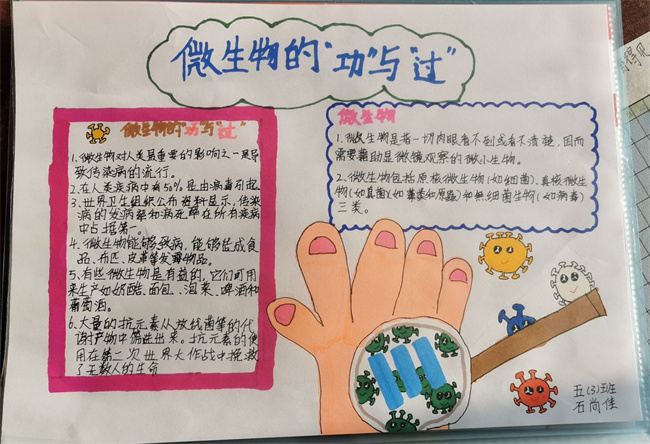 微生物的“功”与“过”
微生物的“功”与“过”
1.微生物对人类最重要的影响之一是导
致传染病的流行。
2.在人类疾病中有50%是由病毒引起
3.世界卫生组织公布资料显示,传染
病的发病率和病死率在所有疾病
中占据第一。
4.微生物能够致病,能够造成食
品、布匹、皮革等发霉物品。
5.有些微生物是有益的,它们可用
来生产如奶酪、面包、泡菜、啤酒和
葡萄酒。
6.大量的抗元素从放线菌等的代
谢产物中筛选出来。抗元素的使
用在第二次世界大作战中挽救
了无数人的生命
微生物
1.微生物是指一切肉眼看不到或看不清楚,因而
需要藉助显微镜观察的微小生物。
2.微生物包括原核微生物(如细菌)、真核微生
物(如真菌)(如藻类和原虫)和无细菌生物(如病毒)
三类。
五(3)班
石尚佳